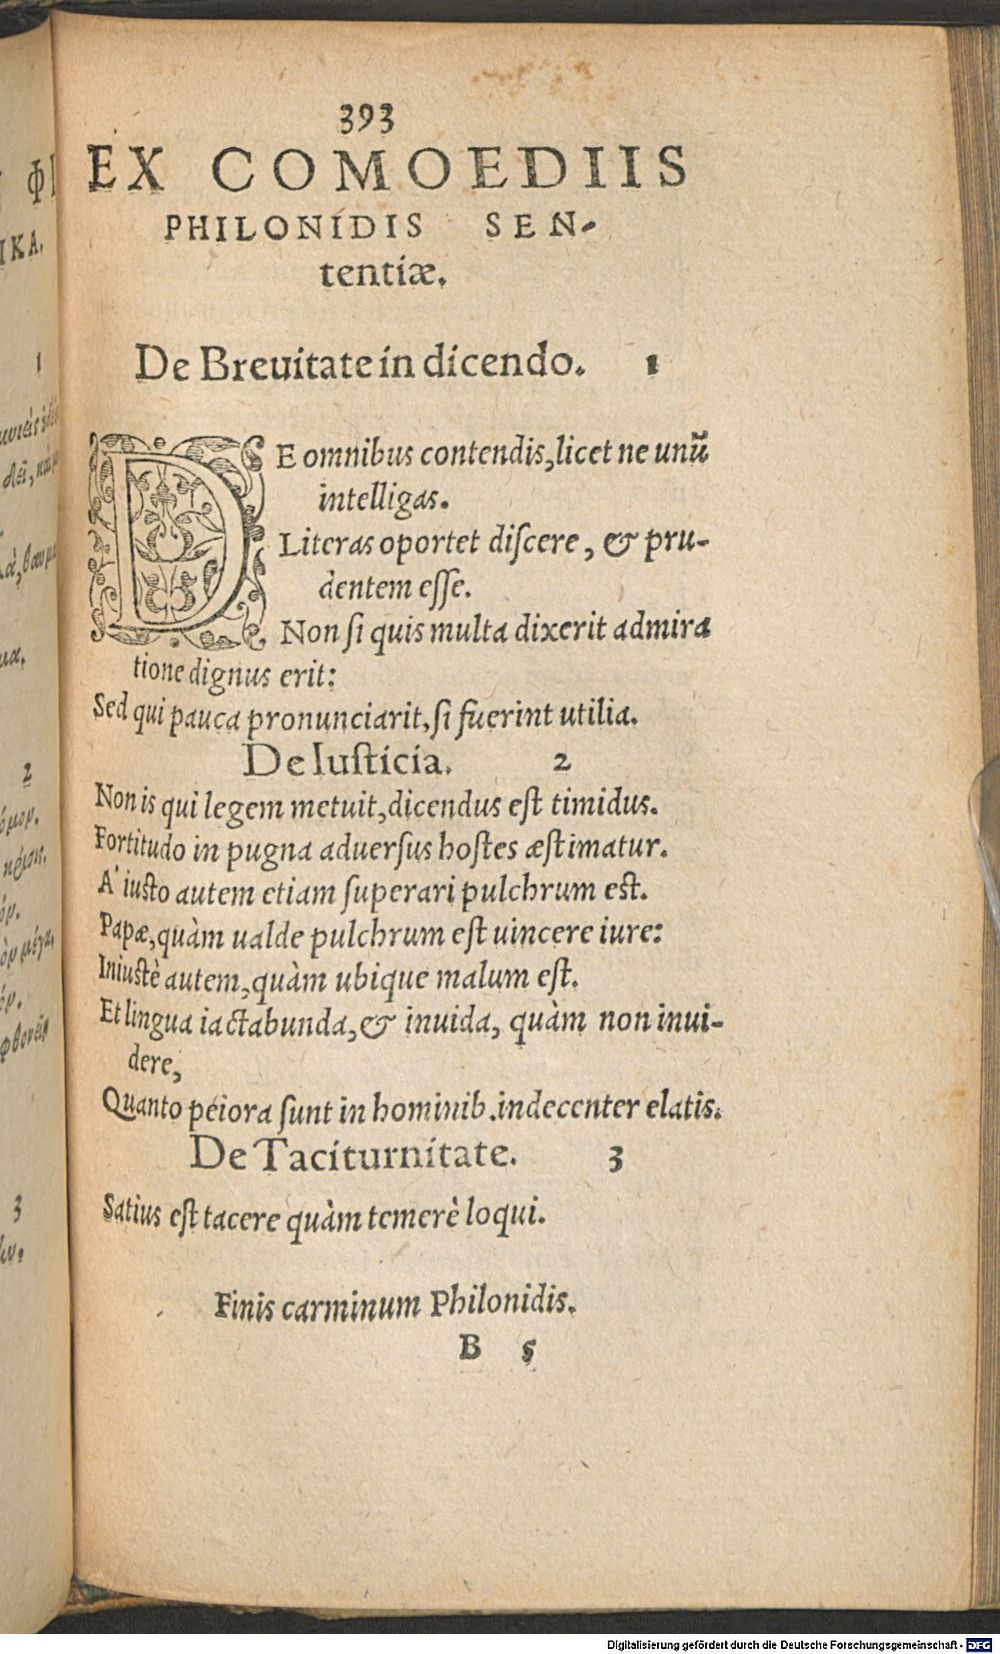 393
EX COMOEDIIS
PHILONIDIS SEN-
tentiæ.
De Breuitate in dicendo. 1
DE omnibus contendis, licet ne unũ
intelligas.
Literas oportet diſcere, & pru-
dentem eſſe.
Non ſi quis multa dixerit admira
tione dignus erit:
Sed qui pauca pronunciarit, ſi fuerint utilia.
De Iuſticia. 2
Non is qui legem metuit, dicendus eſt timidus.
Fortitudo in pugna aduerſus hoſtes æſtimatur.
A' iuſto autem etiam ſuperari pulchrum eſt.
Papæ, quàm ualde pulchrum eſt uincere iure:
Iniuſtè autem, quàm ubique malum eſt.
Et lingua iactabunda, & inuida, quàm non inui-
dere,
Quanto peiora ſunt in hominib. indecenter elatis.
De Taciturnitate. 3
Satius eſt tacere quàm temerè loqui.
Finis carminum Philonidis.
B 5
Digitalisierung gefördert durch die Deutsche Forschungsgemeinschaft - DFG